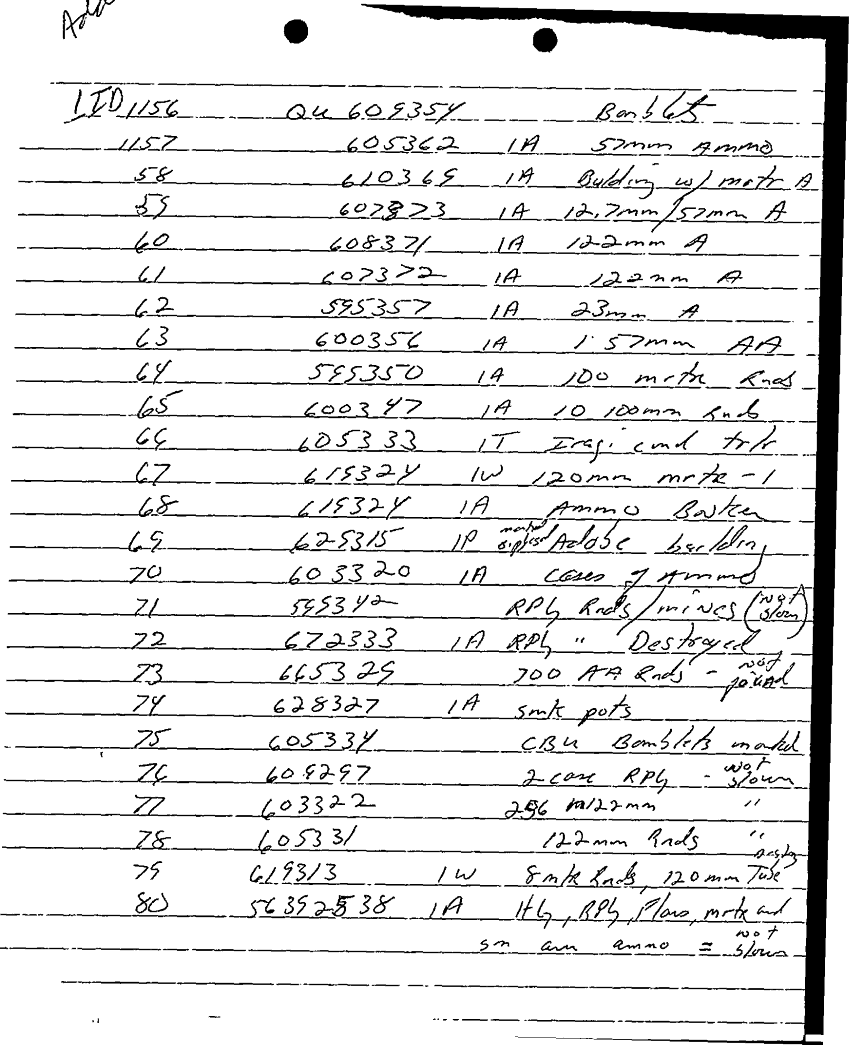 Add
1ID 1156 QU 609354 Bomblets
1157 605362 1A 57mm Ammo
58 610369 1A Building w/ mrtr A
59 607373 1A 12.7mm/57mm A
60 608371 1A 122mm A
61 607372 1A 122mm A
62 595357 1A 23mm A
63 600356 1A 1 57mm AA
64 595350 1A 100 mrtr Rnds
65 600347 1A 10 100mm Rnds
66 605333 1T Iraqi cmd trlr
67 619324 1W 120mm mrtr -1
68 619324 1A Ammo Bunker
69 629315 1P Adobe building
70 603320 1A cases of Ammo
71 599342 RPG Rnds/mines (not blown)
72 672333 1A RPG " Destroyed
73 665329 700 AA Rnds - not found
74 628327 1A smk pots
75 605334 CBU Bomblets marked
76 609297 2 case RPG - not blown
77 603322 256 122mm "
78 605331 122mm Rnds "
79 619313 1W 8 mtr Rnds, 120mm Tube destroy
80 56392538 1A HG, RPG, Flares, mrtr and
sm arm ammo = not blown